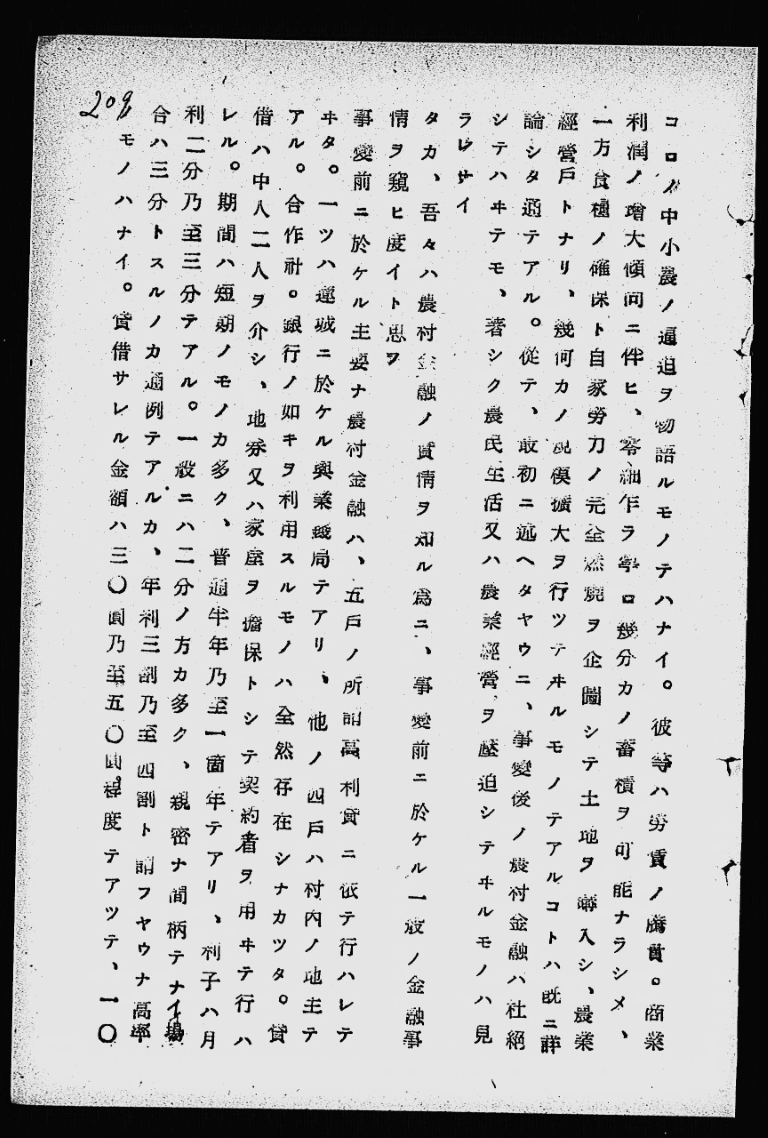 コロノ中小農ノ逼迫ヲ物語ルモノテハナイ。彼等ハ労賃ノ騰貴。商業
利潤ノ増大傾向ニ伴ヒ、零細乍ラ寧ロ幾分カノ畜積ヲ可能ナラシメ、
一方食糧ノ確保ト自家労力ノ完全燃焼ヲ企圖シテ土地ヲ導入シ、農業
經營戸トナリ、幾何カノ規模擴大ヲ行ツテヰルモノテアルコトハ既ニ詳
論シタ通テアル。從テ、最初ニ述ヘタヤウニ、事變後ノ農村金融ハ杜絕
シテハヰテモ、著シク農民生活又ハ農業經營ヲ壓迫シテヰルモノハ見
ラレナイ
タカ、吾々ハ農村金融ノ實情ヲ知ル爲ニ、事變前ニ於ケル一般ノ金融事
情ヲ窺ヒ度イト思フ
事變前ニ於ケル主要ナ農村金融ハ、五戸ノ所謂高利貸ニ依テ行ハレテ
ヰタ。一ツハ運城ニ於ケル興業錢局テアリ、他ノ四戸ハ村內ノ地主テ
アル。合作社。銀行ノ如キヲ利用スルモノハ全然存在シナカツタ。貸
借ハ中人二人ヲ介シ、地券又ハ家屋ヲ擔保トシテ契約書ヲ用ヰテ行ハ
レル。期間ハ短期ノモノカ多ク、普通半年乃至一箇年テアリ、利子ハ月
利二分乃至三分テアル。一般ニハ二分ノ方カ多ク、親密ナ間柄テナイ場
合ハ三分トスルノカ通例テアルカ、年利三割乃至四割ト謂フヤウナ高率
モノハナイ。貸借サレル金額ハ三〇圓乃至五〇圓程度テアツテ、一〇
209